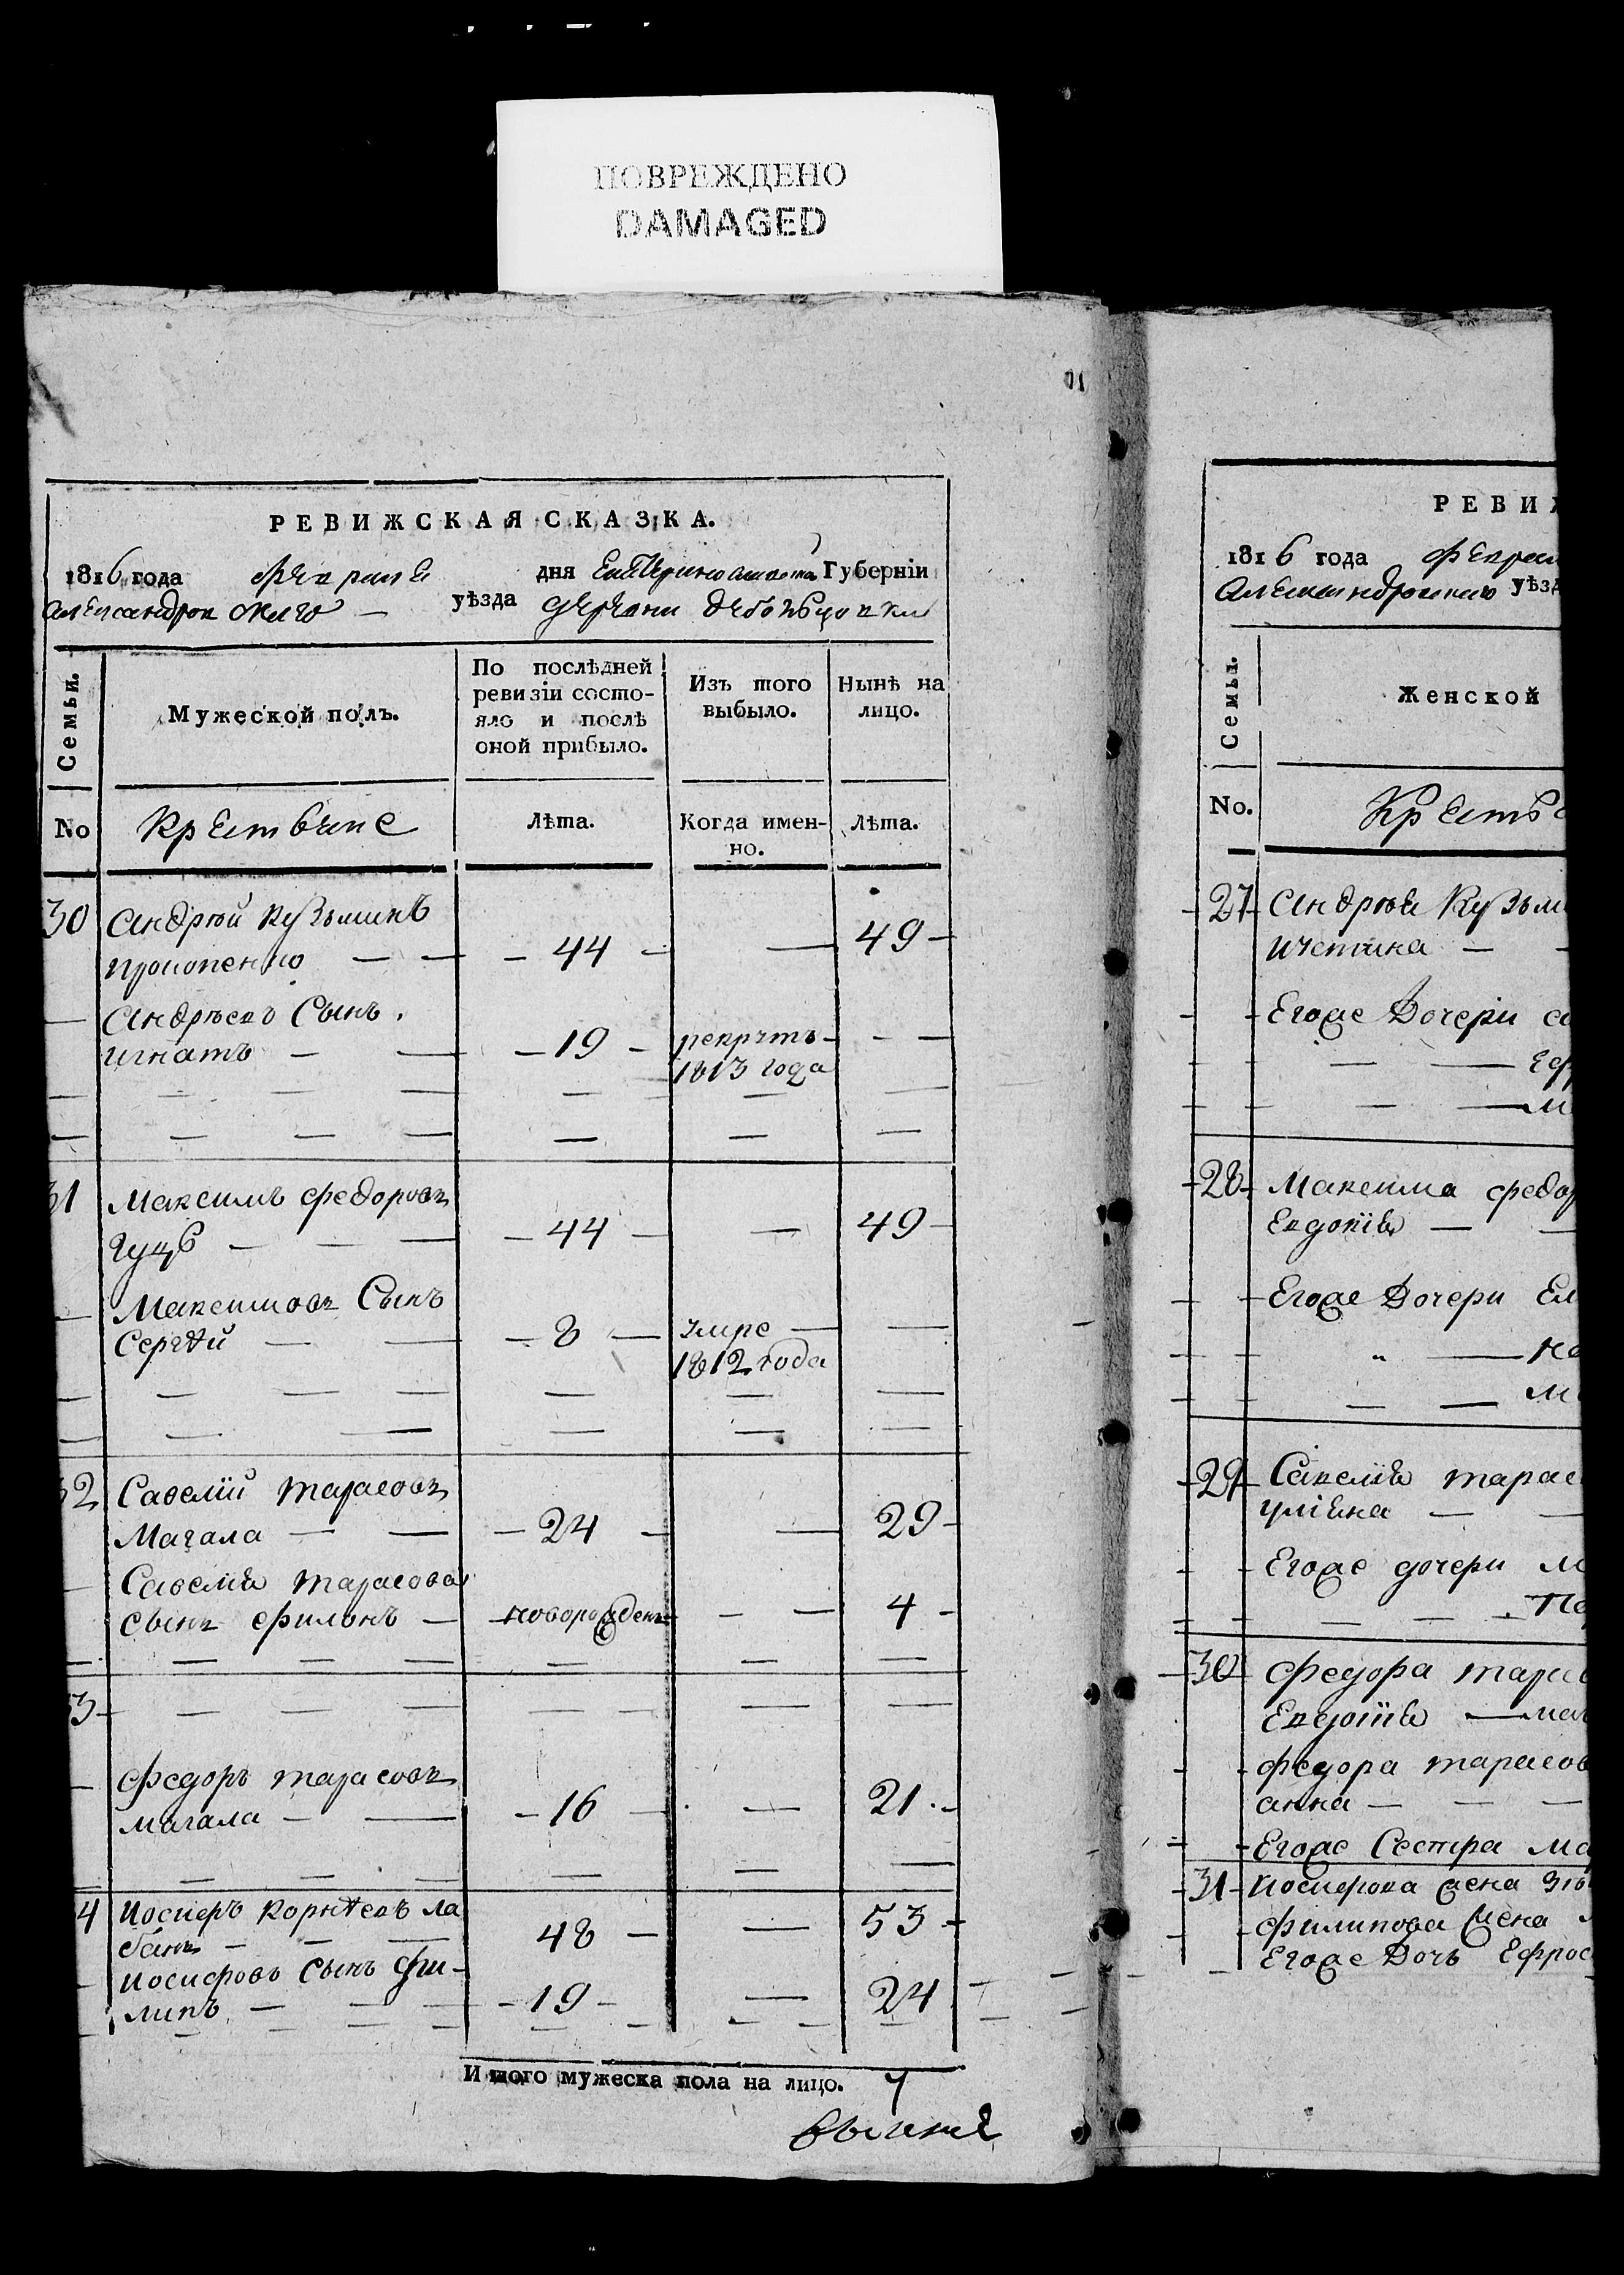 ПОВРЕЖДЕНО
DAMAGED
РЕВИЖСКАЯ СКАЗКА.
1816 года февраля дня Екатеринославской Губерніи
Александровскаго уѣзда деревни
Семьи.
Мужеской полъ.
По послѣдней ревизіи состояло и послѣ оной прибыло.
Изъ того выбыло.
Нынѣ на лицо.
No
Крестьяне
Лѣта.
Когда имен-
но.
Лѣта.
30 Андрей Кузьминъ
Прокопенко — — — 44 — — 49 —
Андреевъ Сынъ.
Игнатъ — — — 19 — рекрутъ — — —
1813 года
31 Максимъ федоровъ
Гуцъ — — — — 44 — — 49 —
Максимовъ Сынъ
Сергѣй — — — 8 — умре — —
1812 года
32 Савелій тарасовъ
Магала — — — 24 — — 29 —
Савелія тарасова
сынъ филонъ — новорожденъ — — 4 —
33
федоръ тарасовъ
магала — — — 16 — — 21 —
34 Иосифъ Корнѣевъ ла
банъ — — — 48 — — 53 —
Иосифовъ Сынъ Фи-
липъ — — — — 19 — — 24
Итого мужеска пола на лицо. 7
РЕВИЖ
1816 года феврал
Александровскаго уѣзд
Семьи.
Женской
No.
Крестья
27 Андрея Кузьм
Егоже Дочери
Еф
Ма
28 Максима федор
Евдокія — —
Егоже Дочери Ел
На
Ма
29 Савелія тарас
улияна — —
Егоже дочери М
Пе
30 федора тарас
Евдокія — мат
федора тарасов
анна — — —
Егоже Сестра Ма
31 Иосифова жена
Филипова жена
Егоже Дочь Ефрос